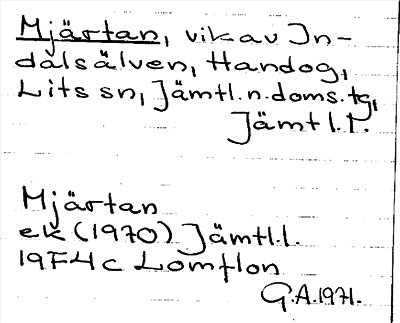 Mjärtan, vik av In-
dalsälven, Handog,
Lits sn, Jämtl.n.doms.tg,
Jämtl.l.
Mjärtan
ek (1970) Jämtl.l.
19F4c Lomflon
G.A.1971.